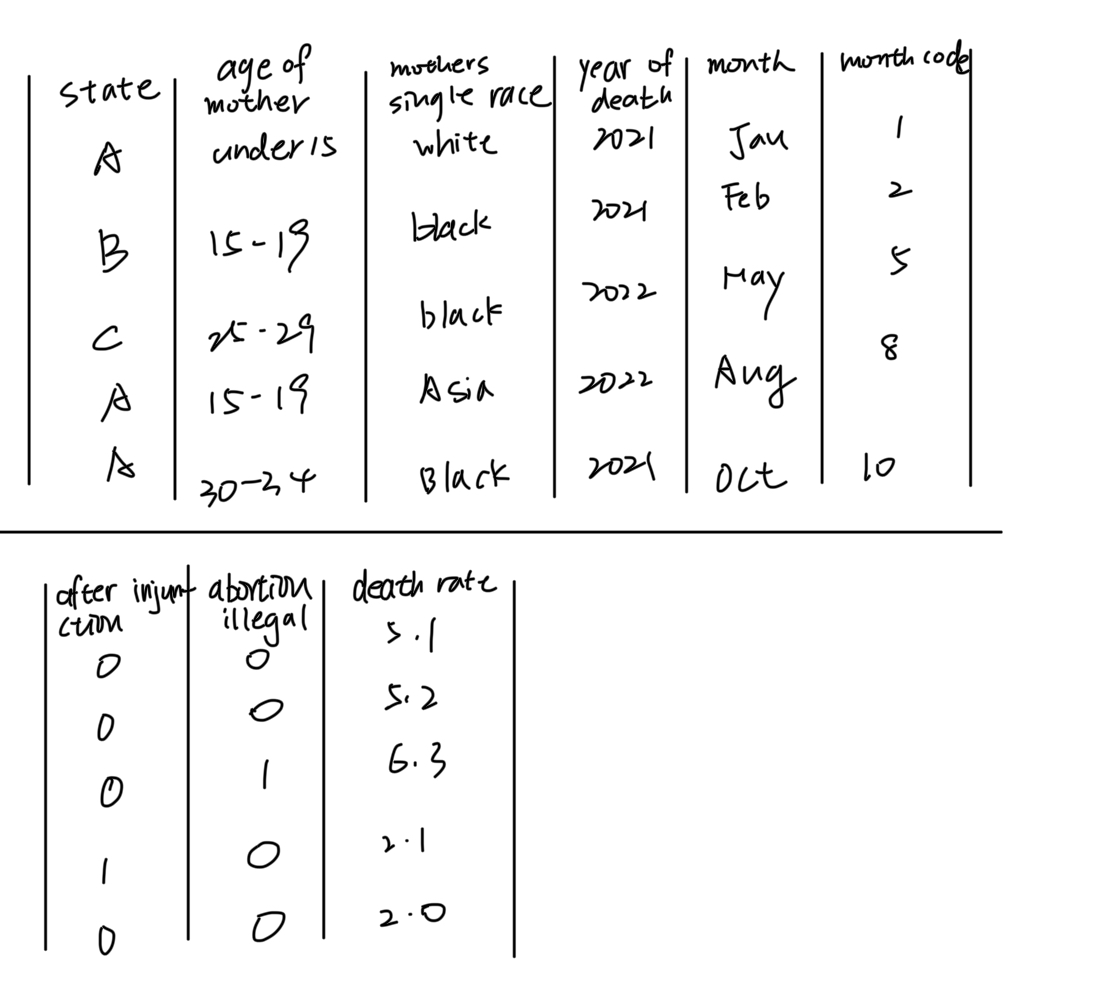 state age of mother mothers single race year of death month month code
A under 15 white 2021 Jan 1
B 15-19 black 2021 Feb 2
C 25-29 black 2022 May 5
A 15-19 Asia 2022 Aug 8
A 30-34 Black 2021 Oct 10
after injunction abortion illegal death rate
0 0 5.1
0 0 5.2
0 1 6.3
1 0 2.1
0 0 2.0